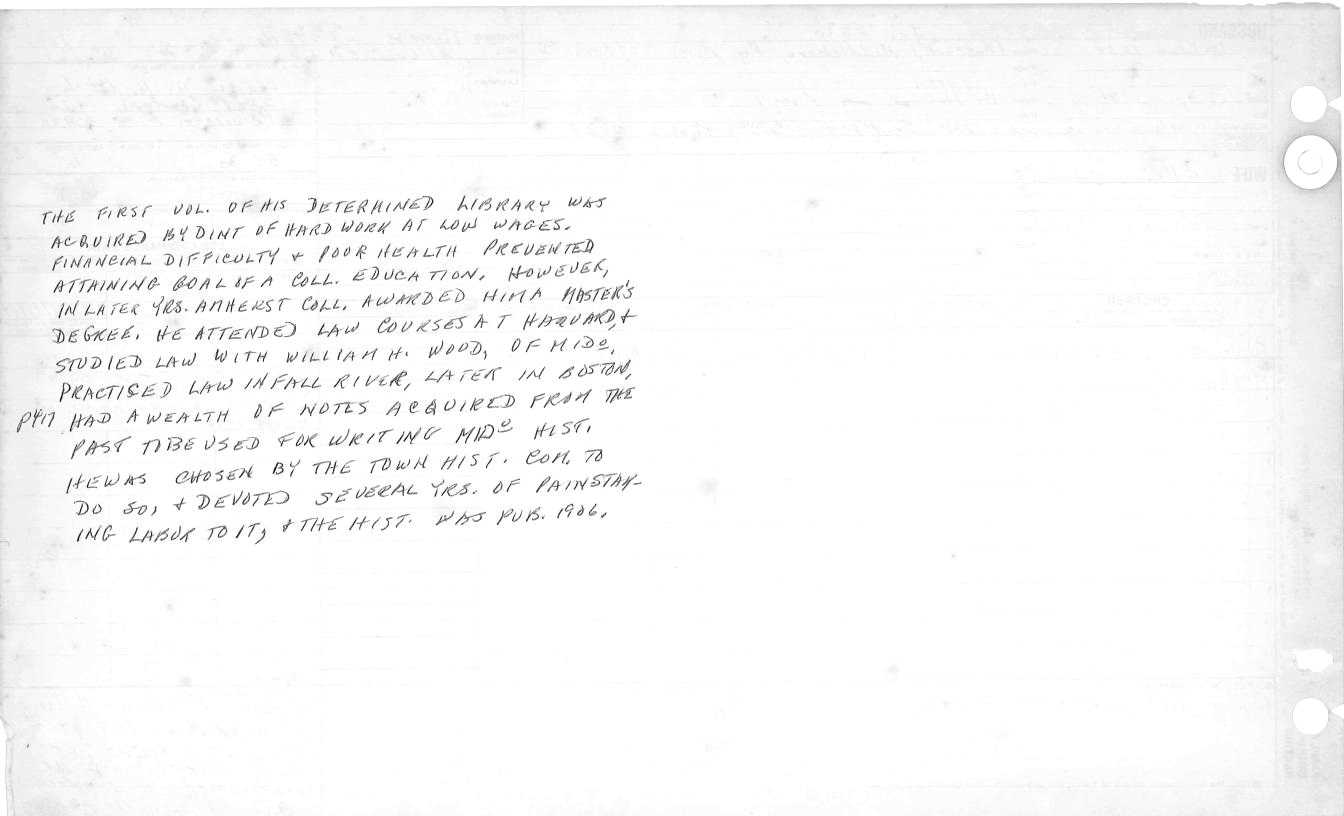 THE FIRST VOL. OF HIS DETERMINED LIBRARY WAS
ACQUIRED BY DINT OF HARD WORK AT LOW WAGES.
FINANCIAL DIFFICULTY & POOR HEALTH PREVENTED
ATTAINING GOAL OF A COLL. EDUCATION. HOWEVER,
IN LATER YRS. AMHERST COLL. AWARDED HIM A MASTER'S
DEGREE. HE ATTENDED LAW COURSES AT HARVARD, &
STUDIED LAW WITH WILLIAM H. WOOD, OF MIDO,
PRACTICED LAW IN FALL RIVER, LATER IN BOSTON,
P417 HAD A WEALTH OF NOTES ACQUIRED FROM THE
PAST TO BE USED FOR WRITING MIDO HIST.
HE WAS CHOSEN BY THE TOWN HIST. COM. TO
DO SO, & DEVOTED SEVERAL YRS. OF PAINSTAK-
ING LABOR TO IT, & THE HIST. WAS PUB. 1906.